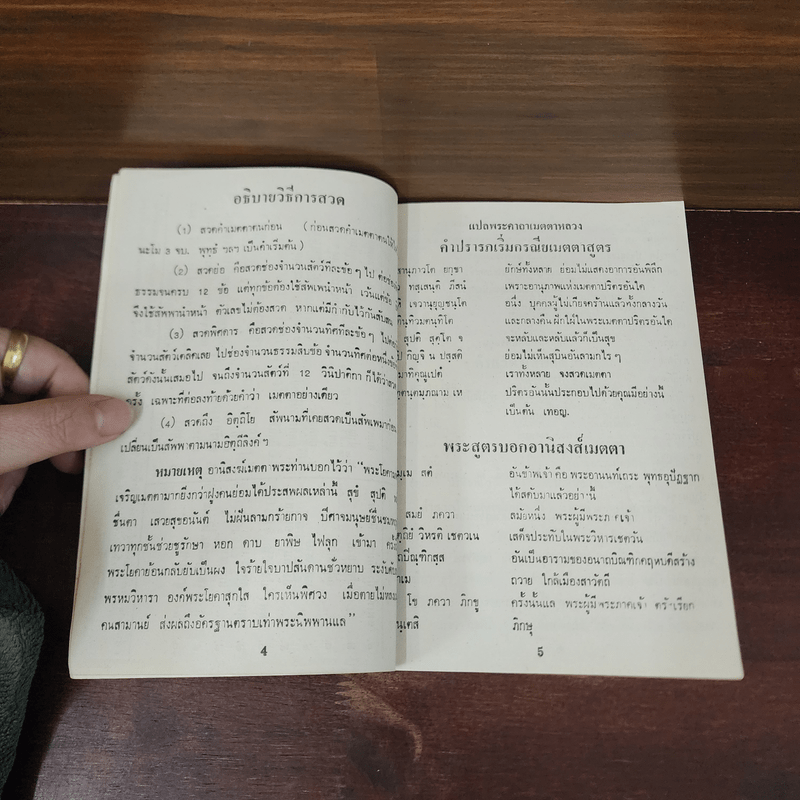 อธิบายวิธีการสวด
(1) สวดคำเมตตาตนก่อน (ก่อนสวดคำเมตตาตนให้
นะโม 3 จบ. พุทฺธํ ฯลฯ เป็นคำเริ่มต้น)
(2) สวดย่อ คือสวดช่องจำนวนสัตว์ทีละข้อๆ ไป
ธรรมจนครบ 12 ข้อ แต่ทุกข้อต้องใช้สัพเพนำหน้า เว้นแต่ข้อ
จึงใช้สัพพานำหน้า ตัวเลขไม่ต้องสวด หากแต่มีกำกับไว้กันสับสน
(3) สวดพิศดาร คือสวดช่องจำนวนทิศทีละข้อๆ ไป
จำนวนสัตว์เดลิดเลย ไปช่องจำนวนธรรมสิบข้อ จำนวนทิศต่อหนึ่งข้อ
สัตว์ดังนั้นเสมอไป จนถึงจำนวนสัตว์ที่ 12 วินิปาติกา ก็ได้ว่า
ครั้ง เฉพาะที่ต่อลงท้ายด้วยคำว่า เมตตาอย่างเดียว
(4) สวดถึง อิตฺถิโย สัพนามที่เคยสวดเป็นสัพเพมาก่อน
เปลี่ยนเป็นสัพพาตามนามอิตฺถีลิงค์ฯ
หมายเหตุ อานิสงฆ์เมตตา พระท่านบอกไว้ว่า "พระโยคา
เจริญเมตตามากยิ่งกว่าฝูงคนย่อมได้ประสพผลเหล่านี้ สุขํ สุปติ
ชื่นตา เสวยสุขอนันต์ ไม่ฝันลามกร้ายกาจ ปีศาจมนุษย์ชื่นชม
เทวาทุกชั้นช่วยชูรักษา หอก ดาบ ยาพิษ ไฟลุก เข้ามา
พระโยคาย้อนกลับยับเป็นผง ใจร้ายใจบาปสันดานชั่วหยาบ ระงับด้วย
พรหมวิหารา องค์พระโยคาสุกใส ใครเห็นพิศวง เมื่อตายไม่หลง
คนสามานย์ ส่งผลถึงอัครฐานตราบเท่าพระนิพพานแล"
4
แปลพระคาถาเมตตาหลวง
คำปรารภเริ่มกรณียเมตตาสูตร
านุภาวโต ยกฺขา ยักษ์ทั้งหลาย ย่อมไม่แสดงอาการอันพิลึก
ทสฺเสนฺติ ภึสนํ เพราะอานุภาพแห่งเมตตาปริตรอันใด
เจวานุยุญฺชนฺโต อนึ่ง บุคคลผู้ไม่เกียจคร้านแล้วทั้งกลางวัน
นฺทิวมตนฺทิโต และกลางคืน ฝักใฝ่ในพระเมตตาปริตรอันใด
สุปติ สุตฺโต จ จะหลับและหลับแล้วก็เป็นสุข
กิญฺจิ น ปสฺสติ ย่อมไม่เห็นสุบินอันลามกใดๆ
าทิคุณูเปตํ เราทั้งหลาย จงสวดเมตตา
ตนฺตมฺภณาม เห ปริตรอันนั้นประกอบไปด้วยคุณมีอย่างนี้
เป็นต้น เทอญ.
พระสูตรบอกอานิสงส์เมตตา
มฺเม สุตํ อันข้าพเจ้า คือ พระอานนท์เถระ พุทธอุปัฏฐาก
ได้สดับมาแล้วอย่างนี้
สมยํ ภควา สมัยหนึ่ง พระผู้มีพระภาคเจ้า
ตฺถิยํ วิหรติ เชตวเน เสด็จประทับในพระวิหารเชตวัน
ถปิณฺฑิกสฺส อันเป็นอารามของอนาถบิณฑิกคฤหบดีสร้าง
าเม ถวาย ใกล้เมืองสาวัตถี
โข ภควา ภิกฺขู ครั้งนั้นแล พระผู้มีพระภาคเจ้า ตรัสเรียก
นฺเตสิ ภิกษุ
5